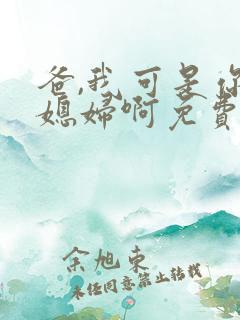 爸,我可是你
媳妇啊免费
余旭东
未经同意禁止转载